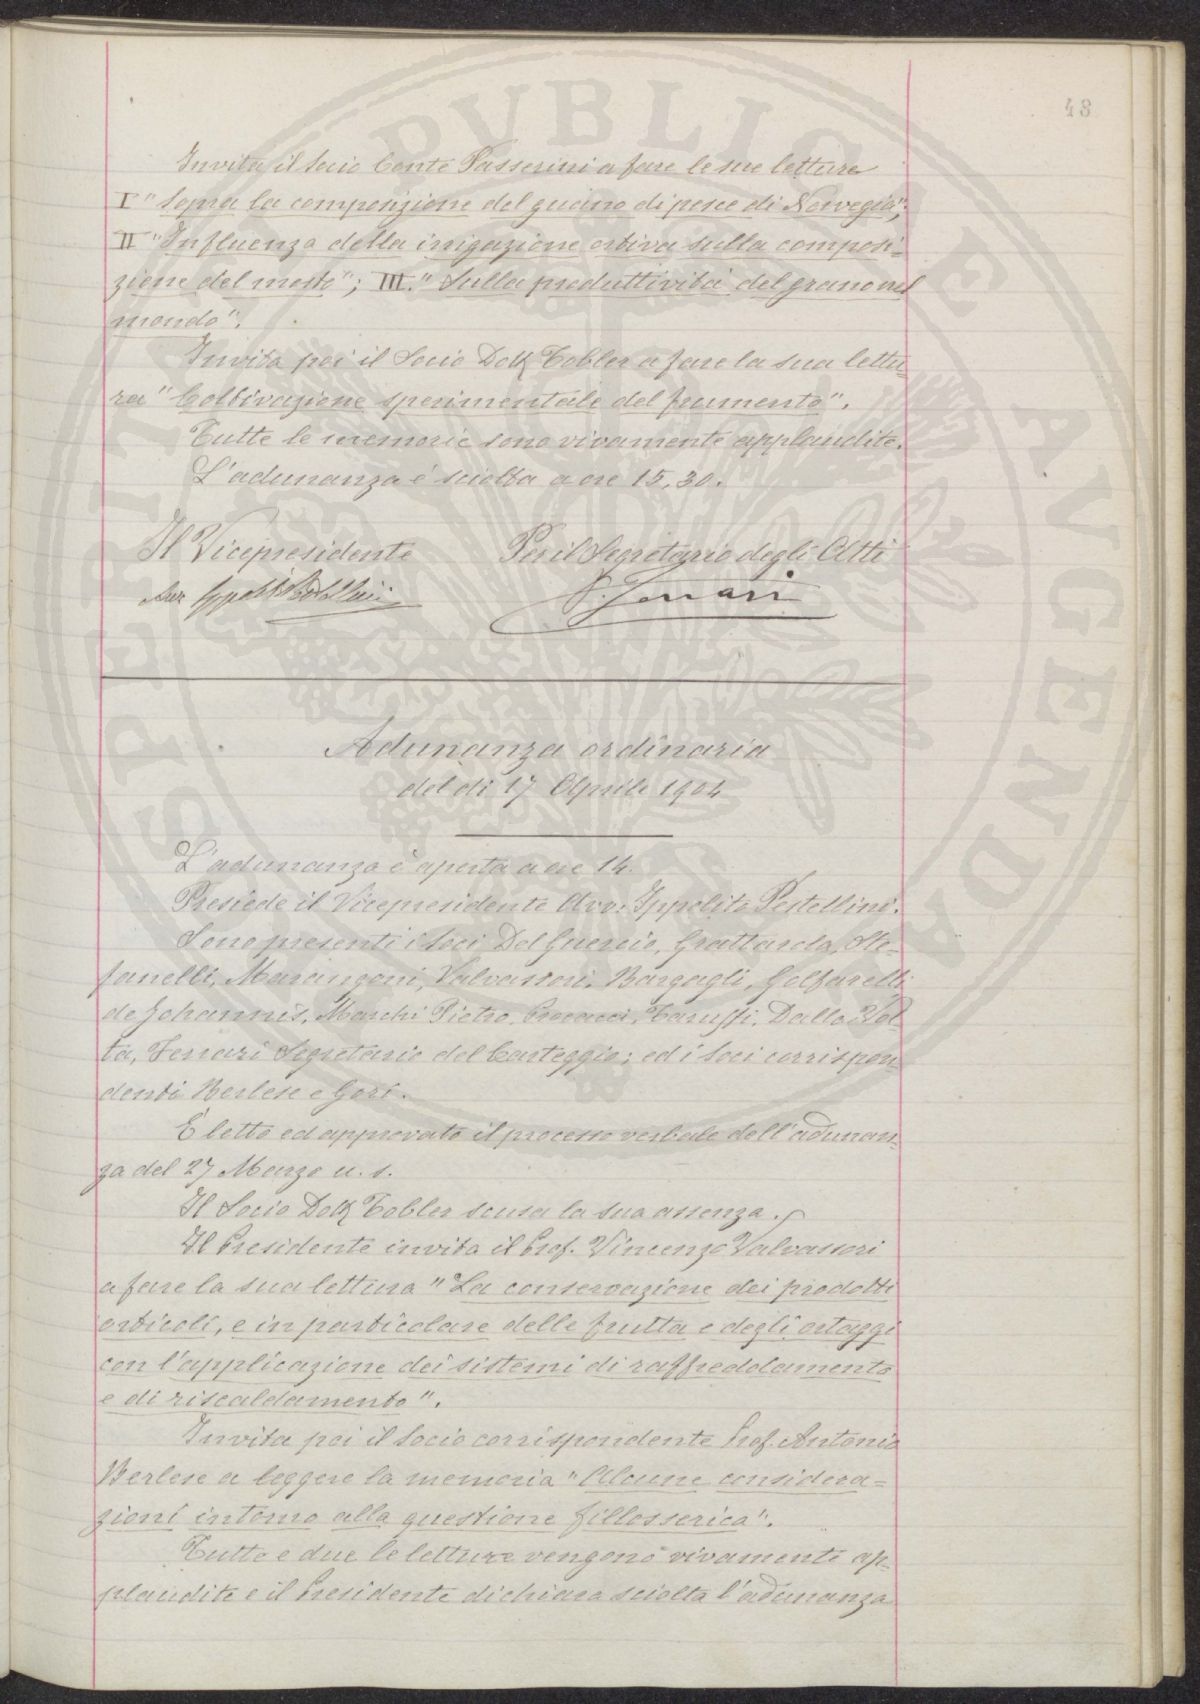 48
Invita il Socio Conte Passerini a fare le sue letture
I "Sopra la composizione del guano di pesce di Norvegia";
II "Influenza della irrigazione estiva sulla composi=
zione del mosto"; III. "Sulla produttività del grano nel
mondo".
Invita poi il Socio Dott. Tobler a fare la sua lettu=
ra "Coltivazione sperimentale del frumento".
Tutte le memorie sono vivamente applaudite.
L'adunanza è sciolta a ore 15,30.
Il Vicepresidente Per il Segretario degli Atti
Avv Ippolito Pestellini P. Ferrari
Adunanza ordinaria
del dì 17 Aprile 1904
L'adunanza è aperta a ore 14.
Presiede il Vicepresidente Avv. Ippolito Pestellini.
Sono presenti i Soci Del Guercio, Grattarola, Ste=
fanelli, Marangoni, Valvassori, Bargagli, Golfarelli
de Johannis, Marchi Pietro, Procacci, Taruffi, Dalla Vol
ta, Ferrari Segretario del Carteggio; ed i Soci corrispon=
denti Berlese e Gori.
È letto ed approvato il processo verbale dell'adunan=
za del 27 Marzo u. s.
Il Socio Dott Tobler scusa la sua assenza.
Il Presidente invita il Prof. Vincenzo Valvassori
a fare la sua lettura "La conservazione dei prodotti
orticoli, e in particolare delle frutta e degli ortaggi
con l'applicazione dei sistemi di raffreddamento
e di riscaldamento".
Invita poi il Socio corrispondente Prof. Antonio
Berlese a leggere la memoria "Alcune considera=
zioni intorno alla questione fillosserica".
Tutte e due le letture vengono vivamente ap=
plaudite e il Presidente dichiara sciolta l'adunanza
PVBLICAE AVGENDA SPERITA